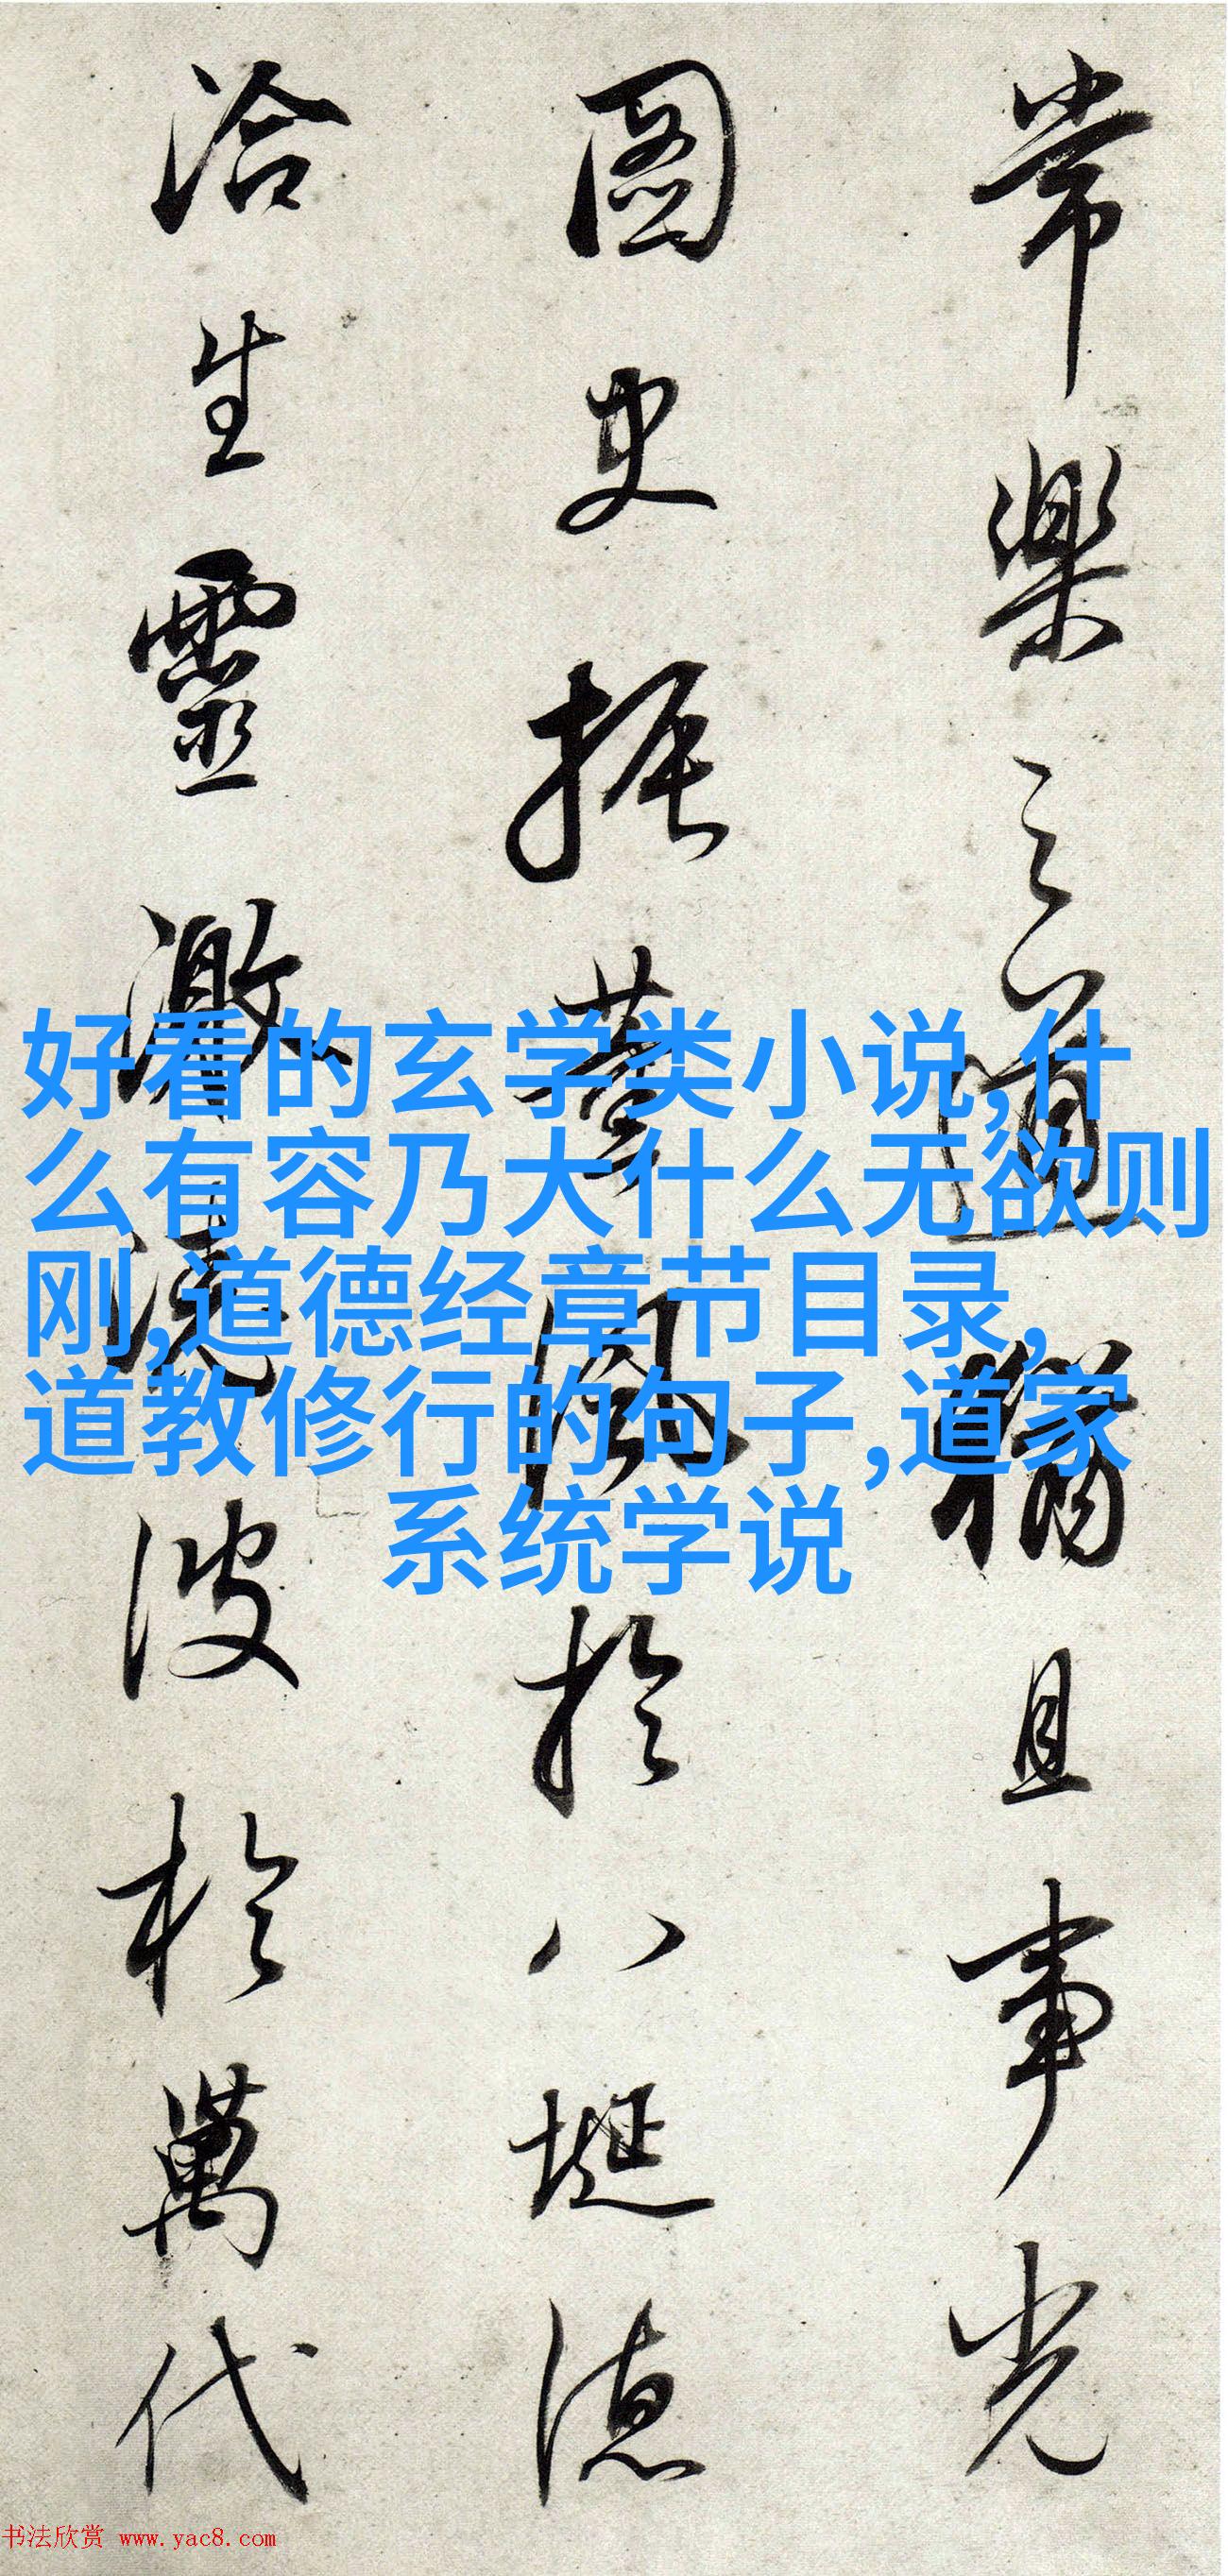 常樂之道猶且事光
圖史振薰風於八埏德
洽生靈激澆波於萬代
好看的玄学类小说,什
么有容乃大什么无欲则
刚,道德经章节目录,
道教修行的句子,道家
系统学说
书法欣赏 www.yac8.com